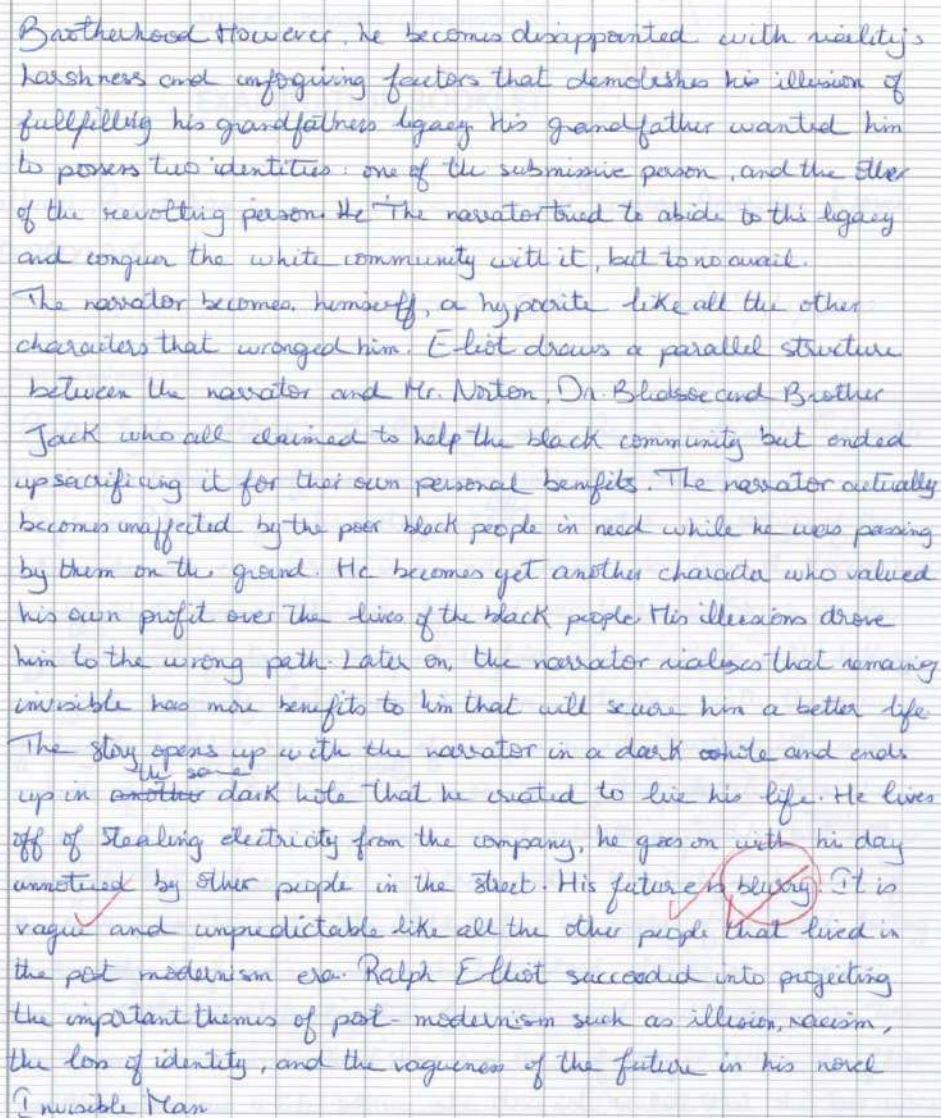 Brotherhood However, he becomes disappointed with reality's
harshness and unfogiving factors that demolishes his illusion of
fullfilling his grandfathers legacy. His grandfather wanted him
to possess two identities: one of the submissive person, and the other
of the revolting person. He The narrator tried to abide to this legacy
and conquer the white community with it, but to no avail.
The narrator becomes, himself, a hypocrite like all the other
characters that wronged him. Elliot draws a parallel structure
between the narrator and Mr. Norton, Dr. Bledsoe and Brother
Jack who all claimed to help the black community but ended
up sacrificing it for their own personal benefits. The narrator actually
becomes unaffected by the poor black people in need while he was passing
by them on the ground. He becomes yet another character who valued
his own profit over the lives of the black people. His illusions drove
him to the wrong path. Later on, the narrator realizes that remaining
invisible has more benefits to him that will secure him a better life
The story opens up with the narrator in a dark hole and ends
up in another the same dark hole that he created to live his life. He lives
off of stealing electricity from the company, he goes on with his day
unnoticed by other people in the street. His future is blurry. It is
vague and unpredictable like all the other people that lived in
the post modernism era. Ralph Elliot succeeded into projecting
the important themes of post-modernism such as illusion, racism,
the loss of identity, and the vagueness of the future in his novel
Invisible Man